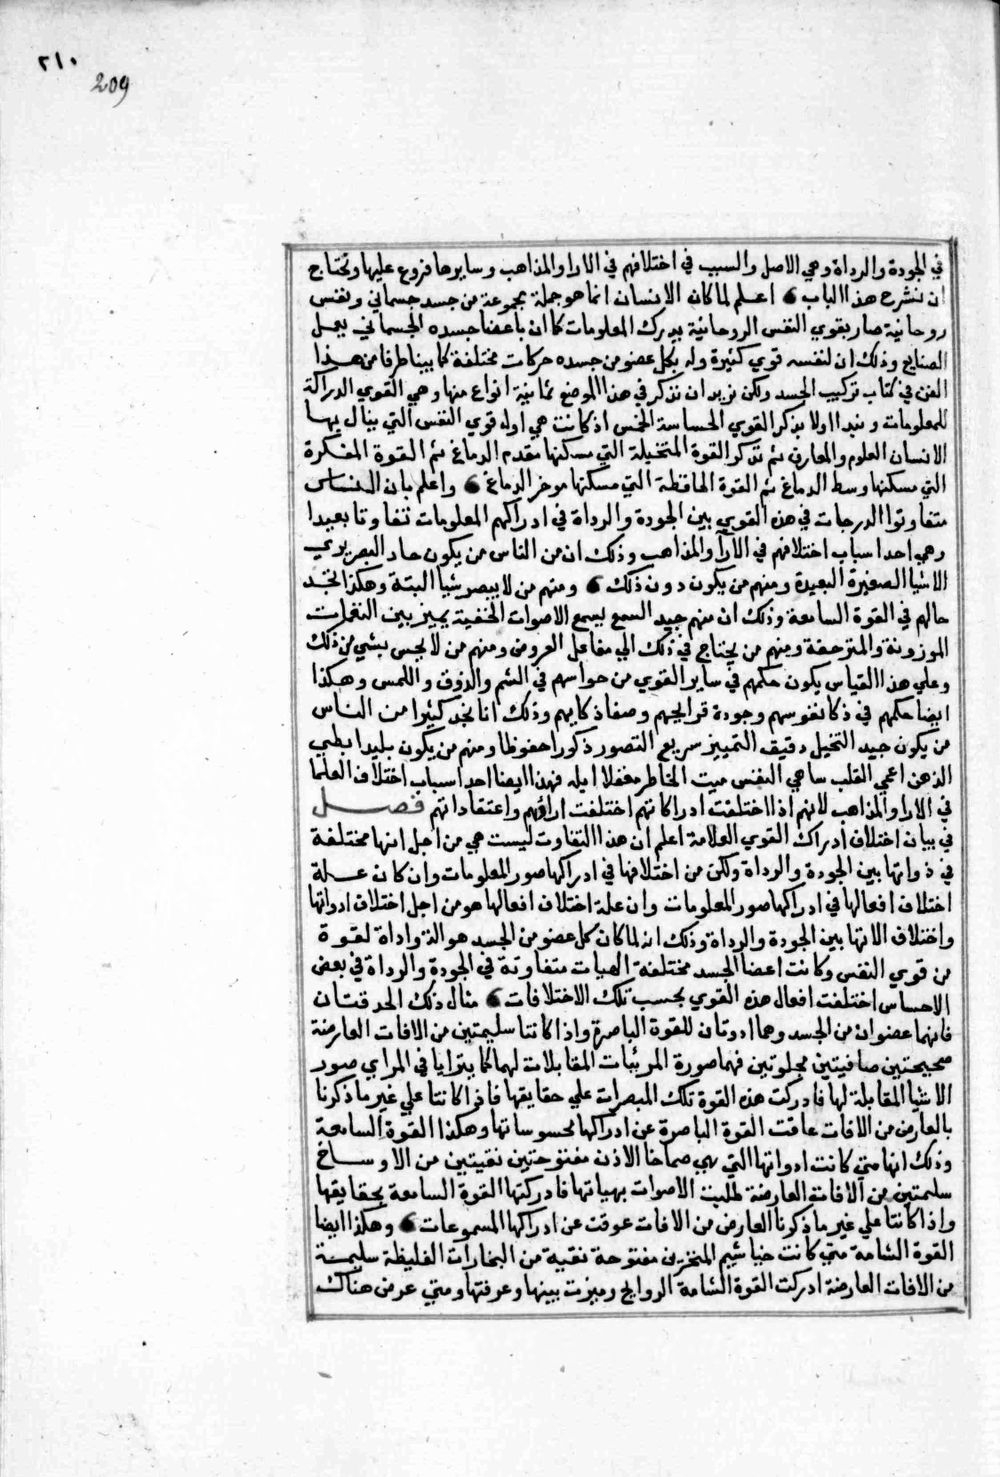 ٢١٠
209
في الجودة والرداة وهي الاصل والسبب في اختلافهم في الارا والمذاهب وسايرها فروع عليها ونحتاج
ان نشرح هذا الباب ه اعلم لما كان الانسان انما هو جملة مجموعة من جسد جسماني ونفس
روحانية صار بقوي النفس الروحانية يدرك المعلومات كما ان باعضا جسده الجسماني يعمل
الصنايع وذلك ان لنفسه قوي كثيرة وله بكل عضو من جسده حركات مختلفة كما بينا طرفا من هذا
الفن في كتاب تركيب الجسد ولكن نريد ان نذكر في هذا الموضع ثمانية انواع منها وهي القوي الدراكة
للمعلومات ونبدا اولا بذكر القوي الحساسة الخمس اذ كانت هي اول قوي النفس التي ينال بها
الانسان العلوم والمعارف ثم نذكر القوة المتخيلة التي مسكنها مقدم الدماغ ثم القوة المفكرة
التي مسكنها وسط الدماغ ثم القوة الحافظة التي مسكنها موخر الدماغ ه واعلم بان الناس
متفاوتوا الدرجات في هذه القوي بين الجودة والرداة في ادراكهم المعلومات تفاوتا بعيدا
وهي احد اسباب اختلافهم في الآرآ والمذاهب وذلك ان من الناس من يكون حاد البصر يري
الاشيا الصغيرة البعيدة ومنهم من يكون دون ذلك ه ومنهم من لا يبصر شيا البتة وهكذا نجد
حالهم في القوة السامعة وذلك ان منهم جيد السمع يسمع الاصوات الخفية يميز بين النغمات
الموزونة والمنزحفة ومنهم من يحتاج في ذلك الي مفاعل العروض ومنهم من لا يحس بشي من ذلك
وعلي هذا القياس يكون حكمهم في ساير القوي من حواسهم في الشم والذوق واللمس وهكذا
ايضا حكمهم في ذكا نفوسهم وجودة قرايحهم وصفا ذكايهم وذلك انا نجد كثيرا من الناس
من يكون جيد التخيل دقيق التمييز سريع التصور ذكورا حفوظا ومنهم من يكون بليدا بطي
الذهن اعمي القلب ساهي النفس ميت الخاطر مغفلا ابله فهذا ايضا احد اسباب اختلاف العلما
في الارا والمذاهب لانهم اذا اختلفت ادراكاتهم اختلفت اراؤهم واعتقاداتهم فصل
في بيان اختلاف ادراك القوي العلامة اعلم ان هذا التفاوت ليست هي من اجل انها مختلفة
في ذواتها بين الجودة والرداة ولكن من اختلافها في ادراكها صور المعلومات وان كان علة
اختلاف افعالها في ادراكها صور المعلومات وان علة اختلاف افعالها هو من اجل اختلاف ادواتها
واختلاف الاتها بين الجودة والرداة وذلك انه لما كان كل عضو من الجسد هو الة واداة لقوة
من قوي النفس وكانت اعضا الجسد مختلفة الهيات متفاوتة في الجودة والرداة في بعض
الاحساس اختلفت افعال هذه القوي بحسب تلك الاختلافات ه مثال ذلك الحدقتان
فانهما عضوان من الجسد وهما ادوتان للقوة الباصرة واذا كانتا سليمتين من الافات العارضة
صحيحتين صافيتين مجلوتين فهما صورة المرئيات المقابلات لهما كما يترايا في المراي صور
الاشيا المقابلة لها فادركت هذه القوة تلك المبصرات علي حقايقها فاذا كانتا علي غير ما ذكرنا
بالعارض من الافات عاقت القوة الباصرة عن ادراكها محسوساتها وهكذا القوة السامعة
وذلك انها متي كانت ادواتها التي هي صماخا الاذن مفتوحتين نقيتين من الاوساخ
سليمتين من الافات العارضة طلبت الاصوات بهياتها فادركتها القوة السامعة بحقايقها
واذا كانتا علي غير ما ذكرنا العارض من الافات عوقت عن ادراكها المسموعات ه وهكذا ايضا
القوة الشامة متي كانت خياشيم المنخرين مفتوحة نقية من البخارات الغليظة سليمة
من الافات العارضة ادركت القوة الشامة الروايح وميزت بينها وعرفتها ومتي عرض هناك